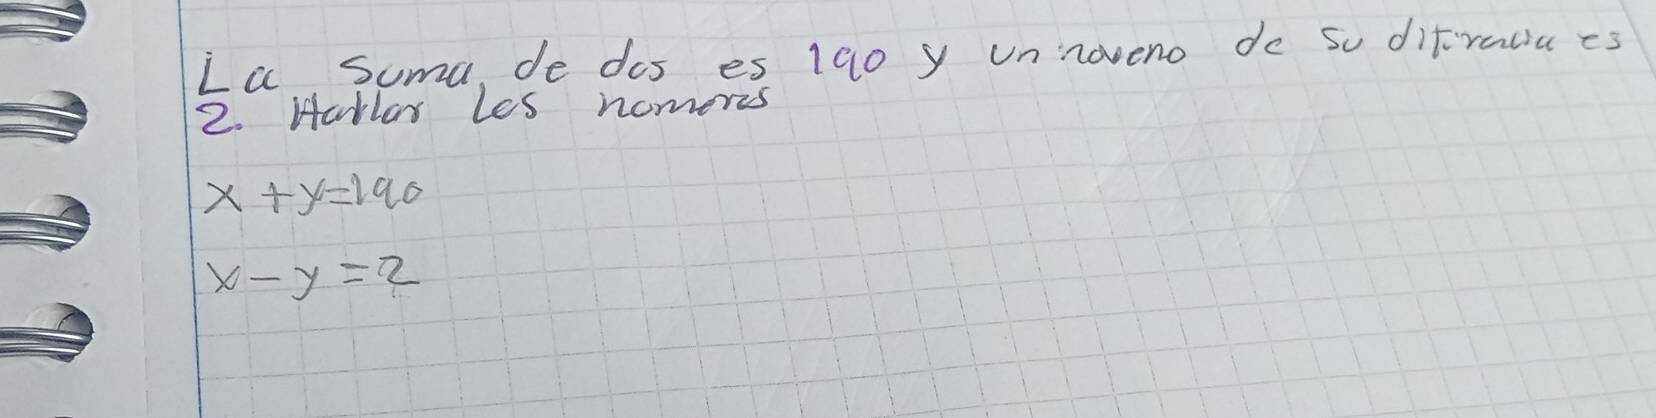 La suma de dos es 190 y un noveno de su diferencia es
2. Hallar los nomeros
x + y = 190
x - y = 2